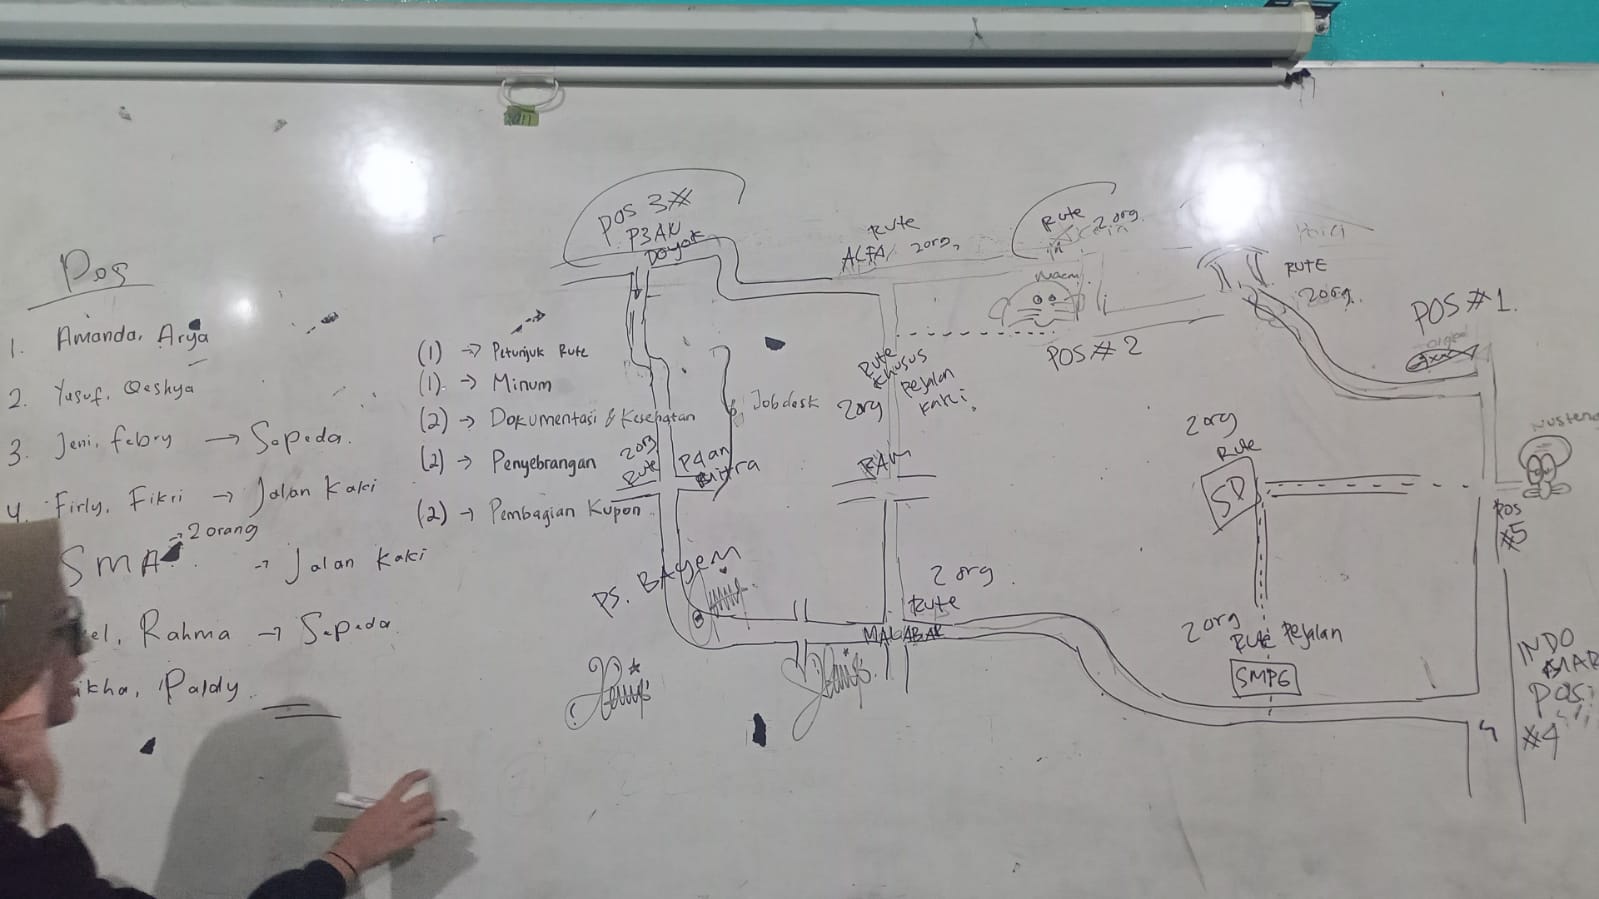 Pos
1. Amanda, Arya
2. Yusuf, Qeshya
3. Jeni, febry → Sepeda.
4. Firly, Fikri → Jalan Kaki
SMA → 2 orang → Jalan Kaki
el, Rahma → Sepeda
ikha, Paldy
(1) → Petunjuk Rute
(1) → Minum
(2) → Dokumentasi & Kesehatan
(2) → Penyebrangan
(2) → Pembagian Kupon
Jobdesk
POS 3#
P3AN
Doyok
Rute
ALFA 2org,
Rute
2 org.
RUTE
2org.
POS #1.
POS #2
Rute
Khusus
Pejalan
Kaki.
2org
2org
Rute
P4an
Mitra
RAM
PS. BAYEM
2 org.
Rute
MALABAR
2org
Rute
SD
2org
Rute Pejalan
SMP6
POS
#5
INDO
MAR
POS
#4